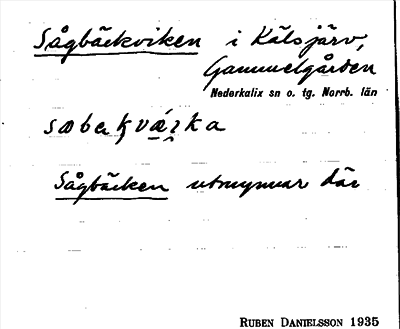 Sågbäckviken i Kälsjärv,
Gammelgården
Nederkalix sn o. tg. Norrb. län
Sågbäcken utmynnar där
RUBEN DANIELSSON 1935